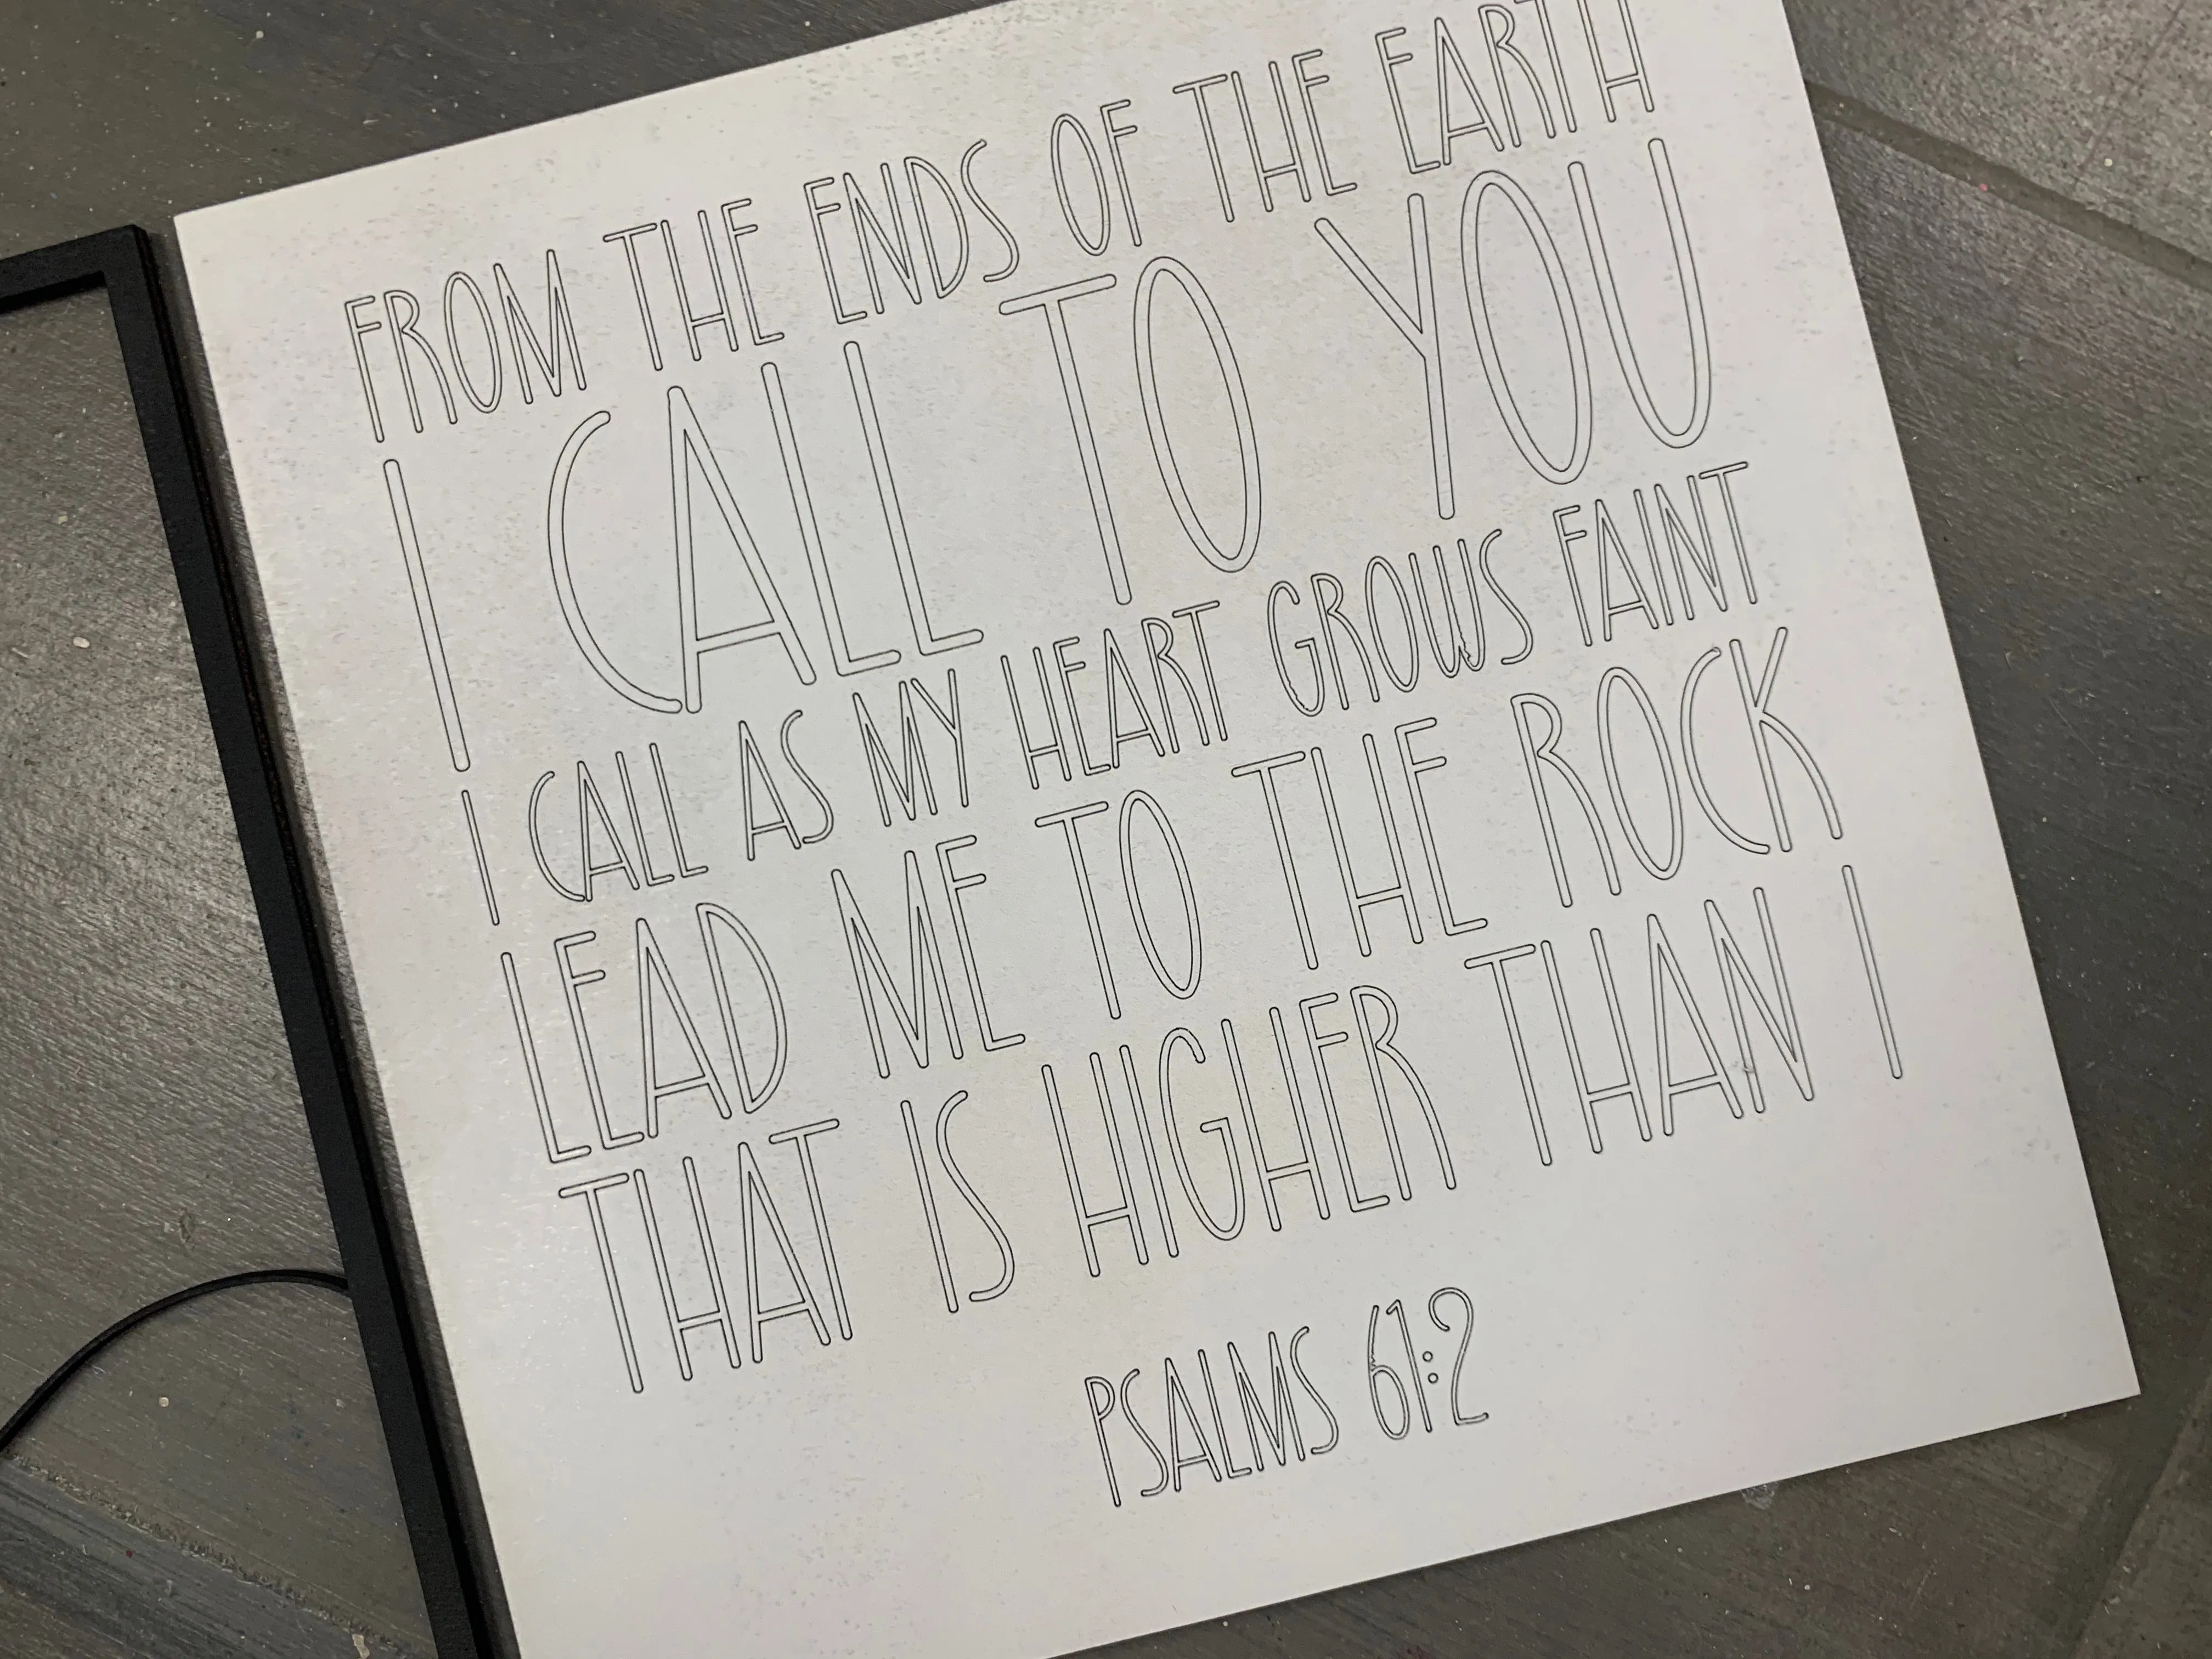 FROM THE ENDS OF THE EARTH
I CALL TO YOU
I CALL AS MY HEART GROWS FAINT
LEAD ME TO THE ROCK
THAT IS HIGHER THAN I
PSALMS 61:2